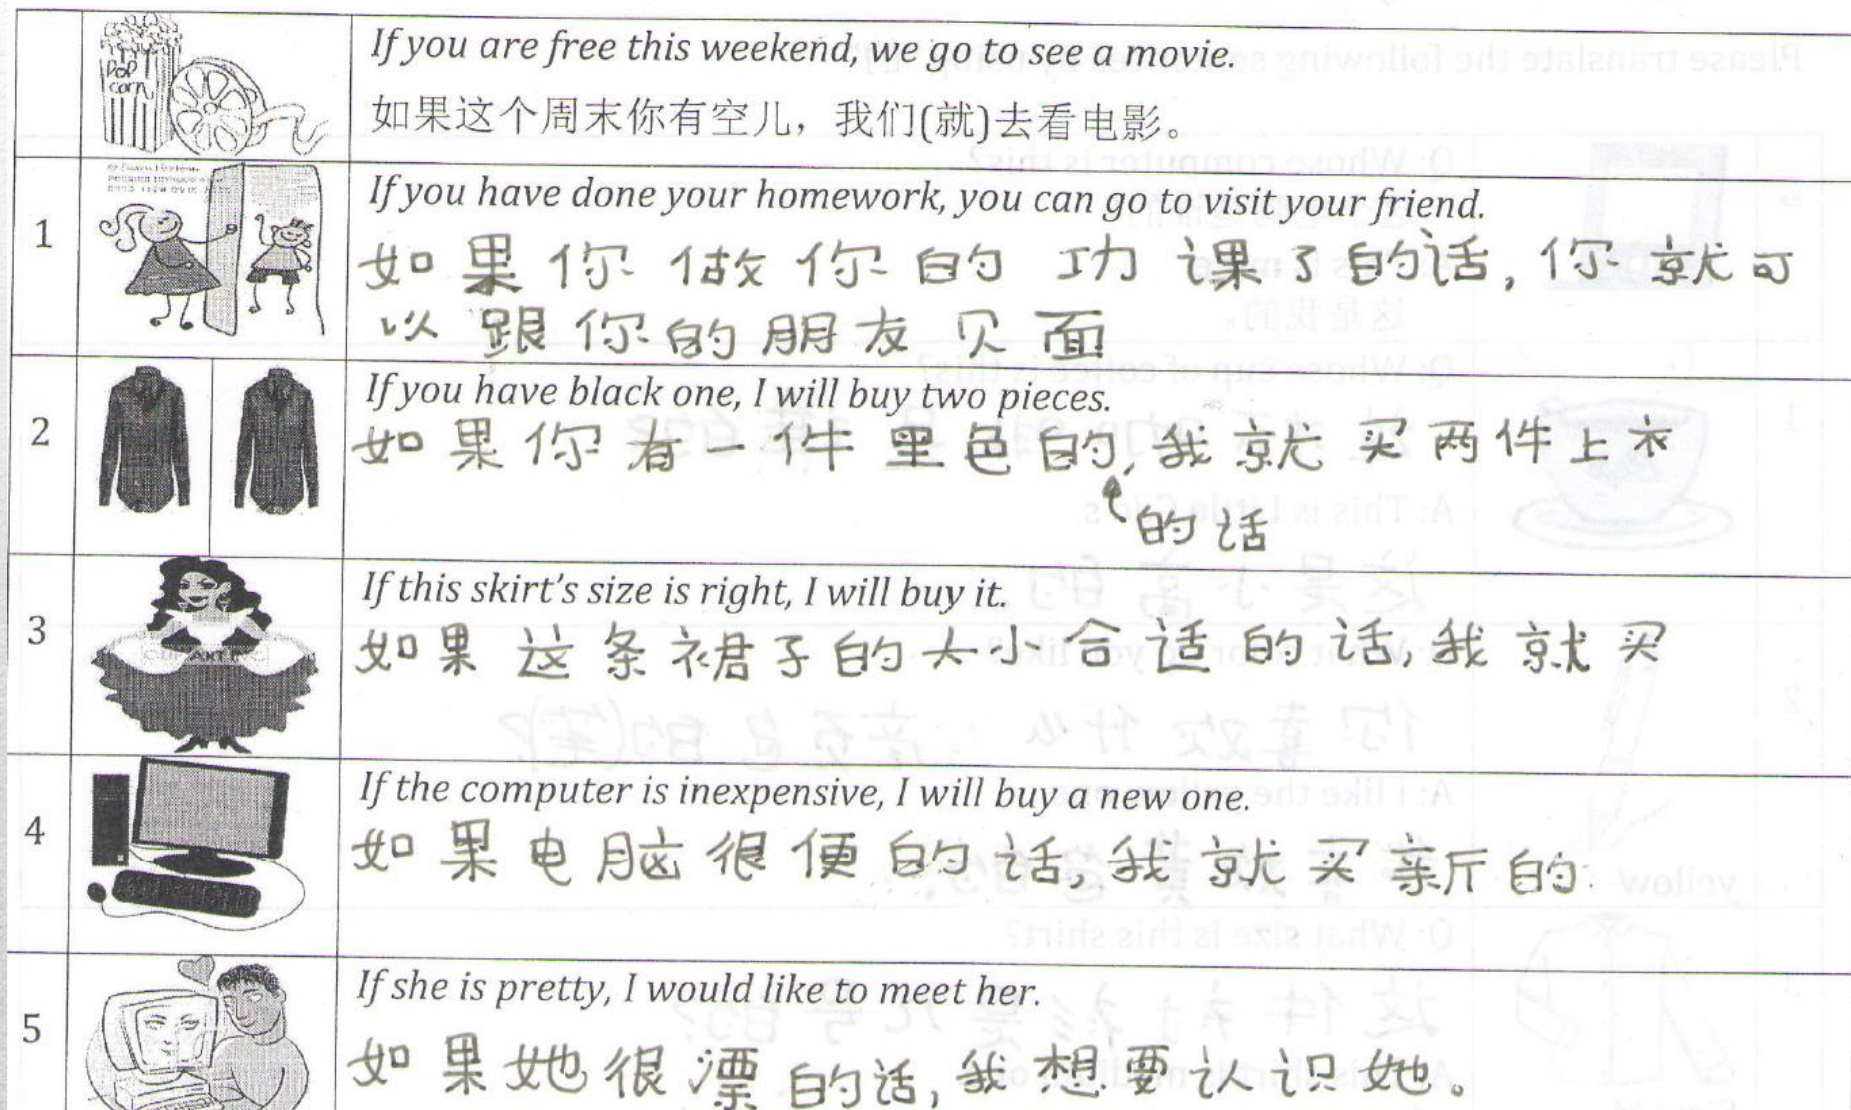 POP
corn
If you are free this weekend, we go to see a movie.
如果这个周末你有空儿，我们(就)去看电影。
1
If you have done your homework, you can go to visit your friend.
如果你做你的功课了的话,你就可
以跟你的朋友见面
2
If you have black one, I will buy two pieces.
如果你有一件黑色的,我就买两件上衣
的话
3
If this skirt's size is right, I will buy it.
如果这条裙子的大小合适的话,我就买
4
If the computer is inexpensive, I will buy a new one.
如果电脑很便的话,我就买新的
5
If she is pretty, I would like to meet her.
如果她很漂的话,我想要认识她。